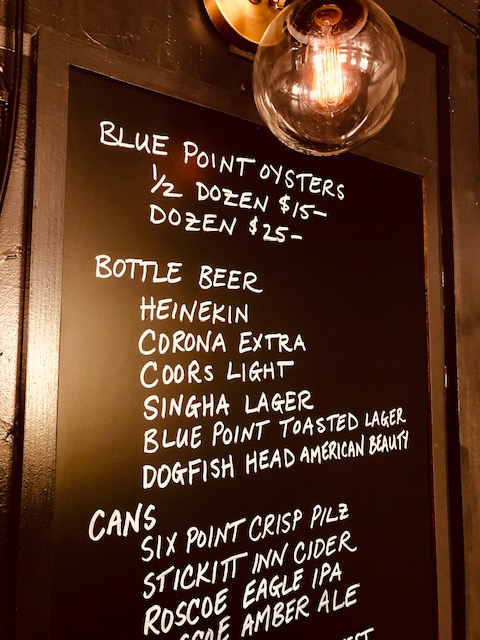 BLUE POINT OYSTERS
1/2 DOZEN $15-
DOZEN $25-
BOTTLE BEER
HEINEKIN
CORONA EXTRA
COORS LIGHT
SINGHA LAGER
BLUE POINT TOASTED LAGER
DOGFISH HEAD AMERICAN BEAUTY
CANS
SIX POINT CRISP PILZ
STICKITT INN CIDER
ROSCOE EAGLE IPA
AMBER ALE